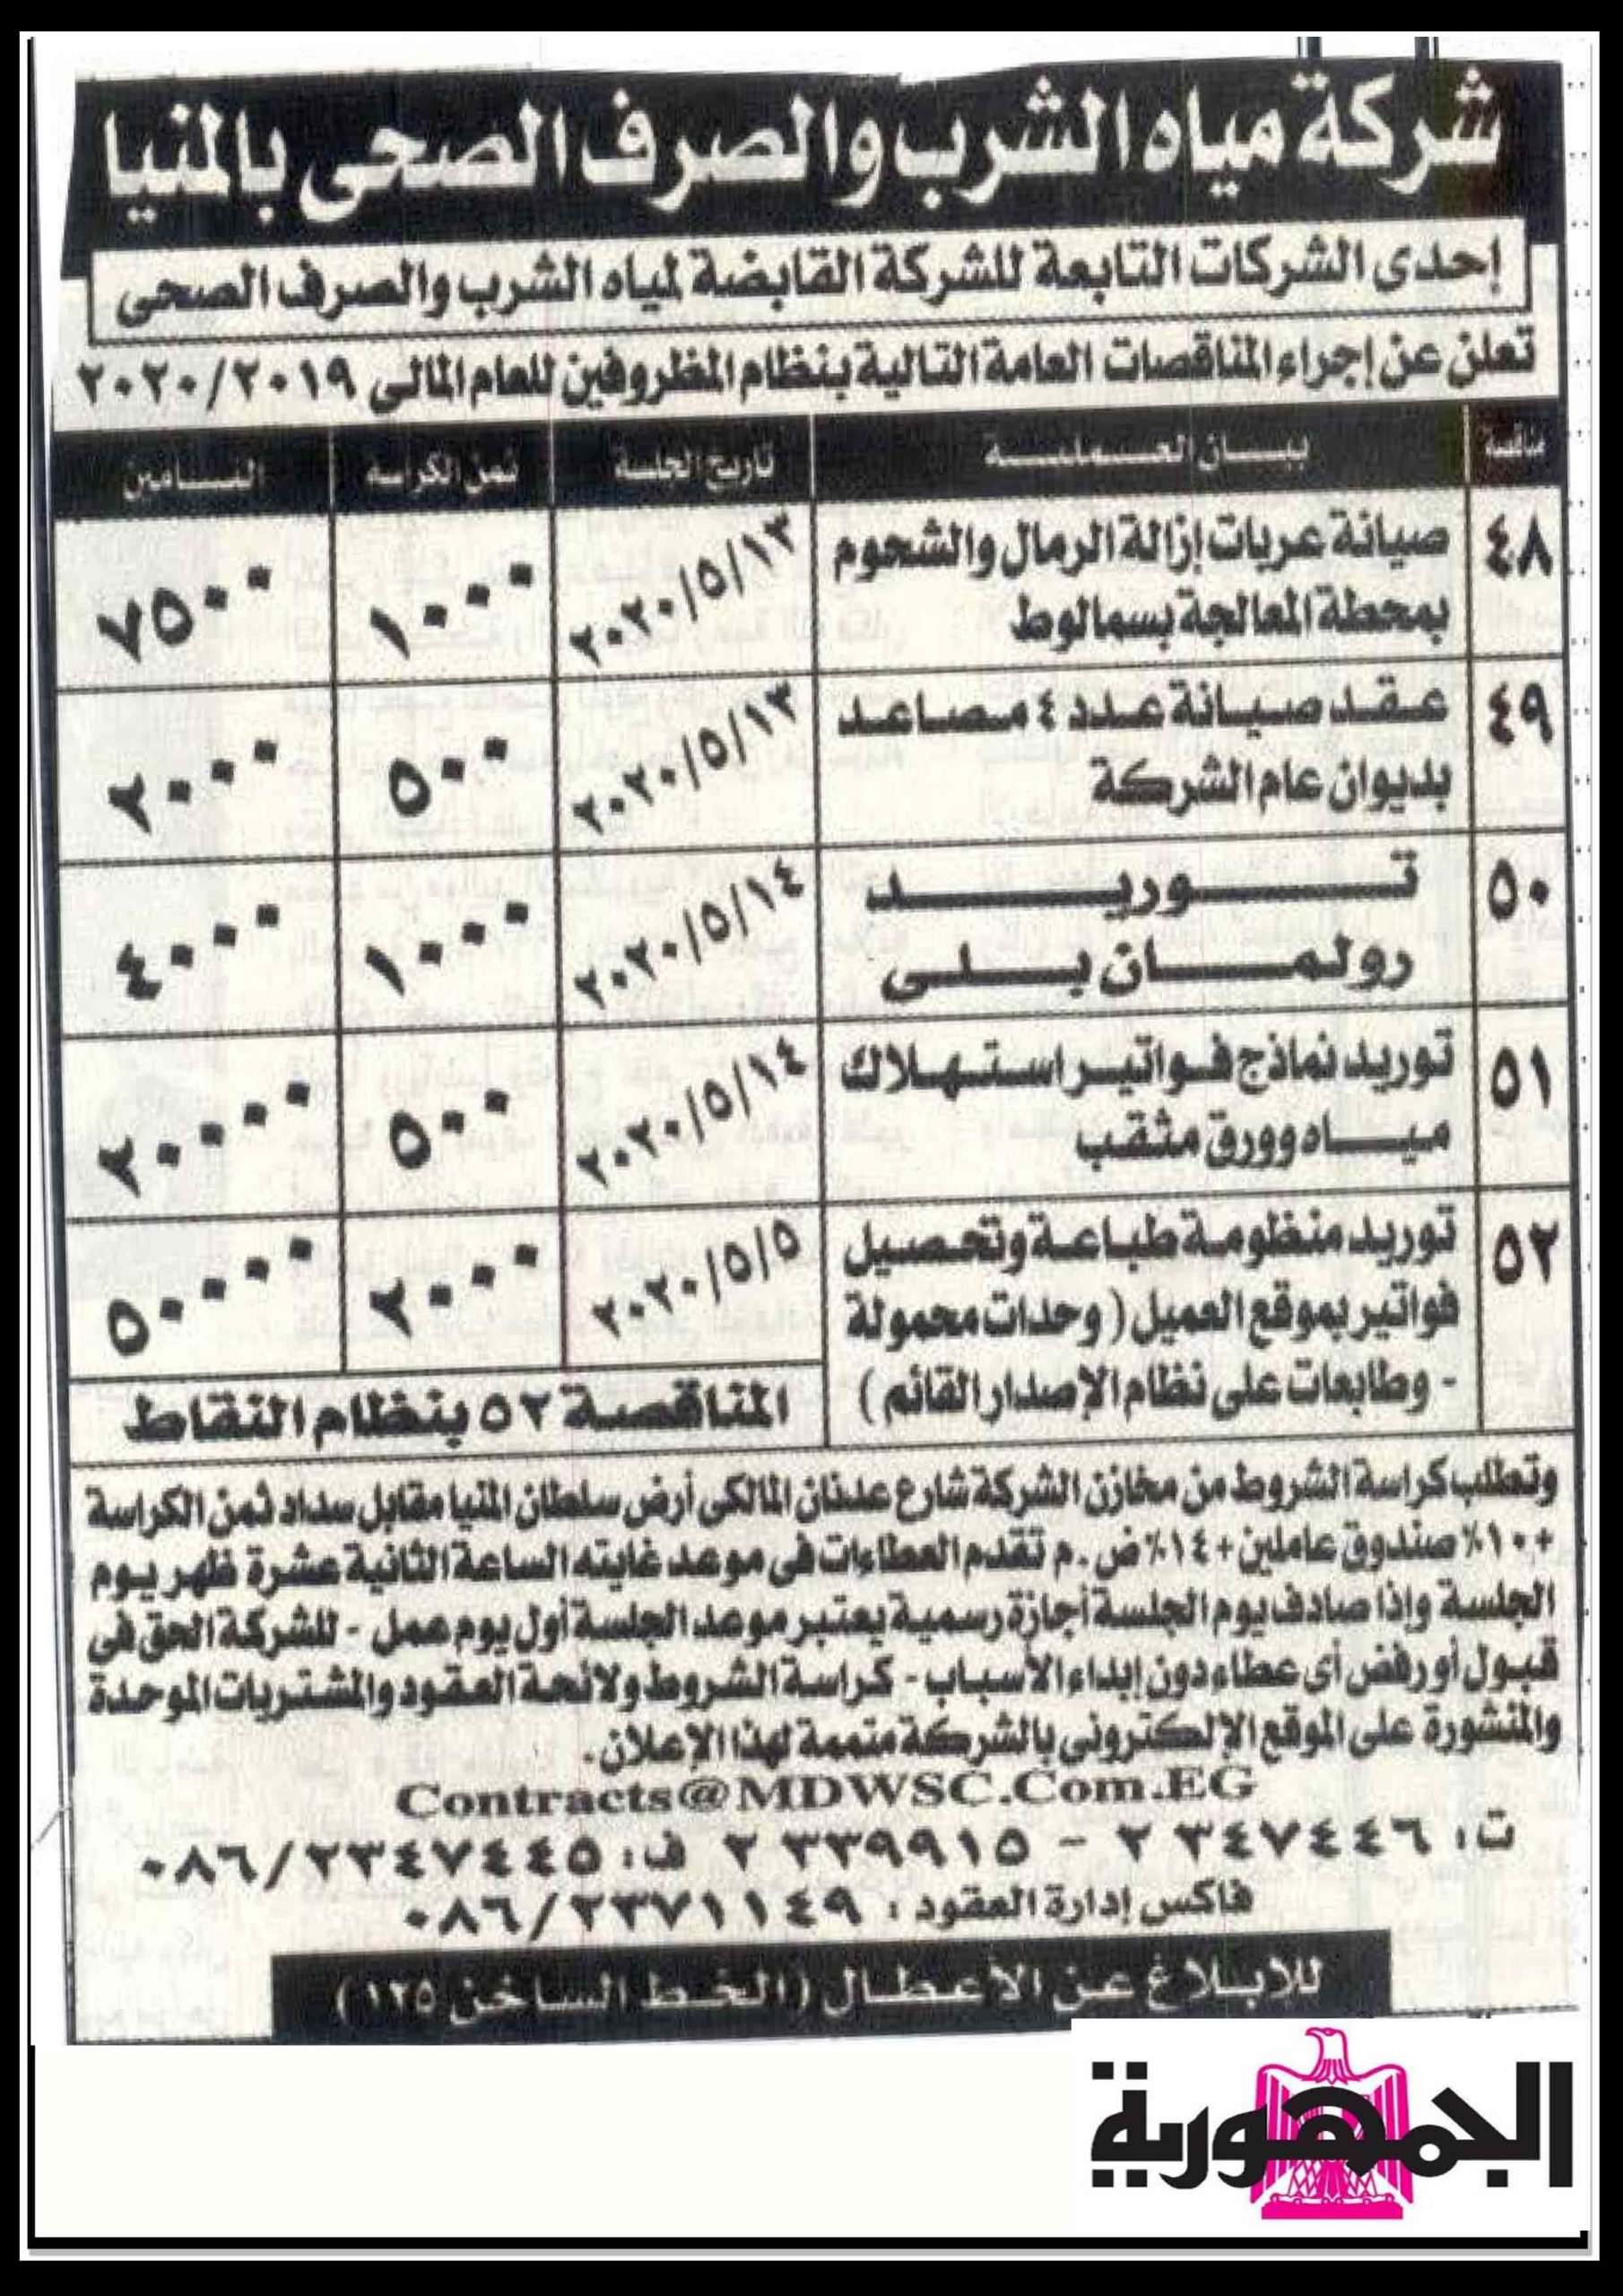 شركة مياه الشرب والصرف الصحى بالمنيا
إحدى الشركات التابعة للشركة القابضة لمياه الشرب والصرف الصحى
تعلن عن إجراء المناقصات العامة التالية بنظام المظروفين للعام المالى ٢٠٢٠/٢٠١٩
مناقصة بيــان العـمليــة تاريخ الجلسة ثمن الكراسة التــامين
٤٨ صيانة عربات إزالة الرمال والشحوم ٢٠٢٠/٥/١٣ ١٠٠٠ ٧٥٠٠
بمحطة المعالجة بسمالوط
٤٩ عقد صيانة عدد ٤ مصاعد ٢٠٢٠/٥/١٣ ٥٠٠ ٢٠٠٠
بديوان عام الشركة
٥٠ توريد ٢٠٢٠/٥/١٤ ١٠٠٠ ٤٠٠٠
رولمان بلى
٥١ توريد نماذج فواتير استهلاك ٢٠٢٠/٥/١٤ ٥٠٠ ٢٠٠٠٠
مياه وورق مثقب
٥٢ توريد منظومة طباعة وتحصيل ٢٠٢٠/٥/٥ ٢٠٠٠ ٥٠٠٠٠
فواتير بموقع العميل ( وحدات محمولة
- وطابعات على نظام الإصدار القائم )
المناقصة ٥٢ بنظام النقاط
وتطلب كراسة الشروط من مخازن الشركة شارع عدنان المالكى أرض سلطان المنيا مقابل سداد ثمن الكراسة
+ ١٠٪ صندوق عاملين + ١٤٪ ض . م تقدم العطاءات فى موعد غايته الساعة الثانية عشرة ظهر يوم
الجلسة وإذا صادف يوم الجلسة أجازة رسمية يعتبر موعد الجلسة أول يوم عمل - للشركة الحق فى
قبول أو رفض أى عطاء دون إبداء الأسباب - كراسة الشروط ولائحة العقود والمشتريات الموحدة
والمنشورة على الموقع الإلكترونى بالشركة متممة لهذا الإعلان.
Contracts@MDWSC.Com.EG
ت: ٢٣٤٧٤٤٦ ٢ - ٢٣٣٩٩١٥ ٢ ف: ٠٨٦/٢٣٤٧٤٤٥
فاكس إدارة العقود : ٠٨٦/٢٣٧١١٤٩
للإبلاغ عن الأعطال (الخط الساخن ١٢٥)
الجمهورية